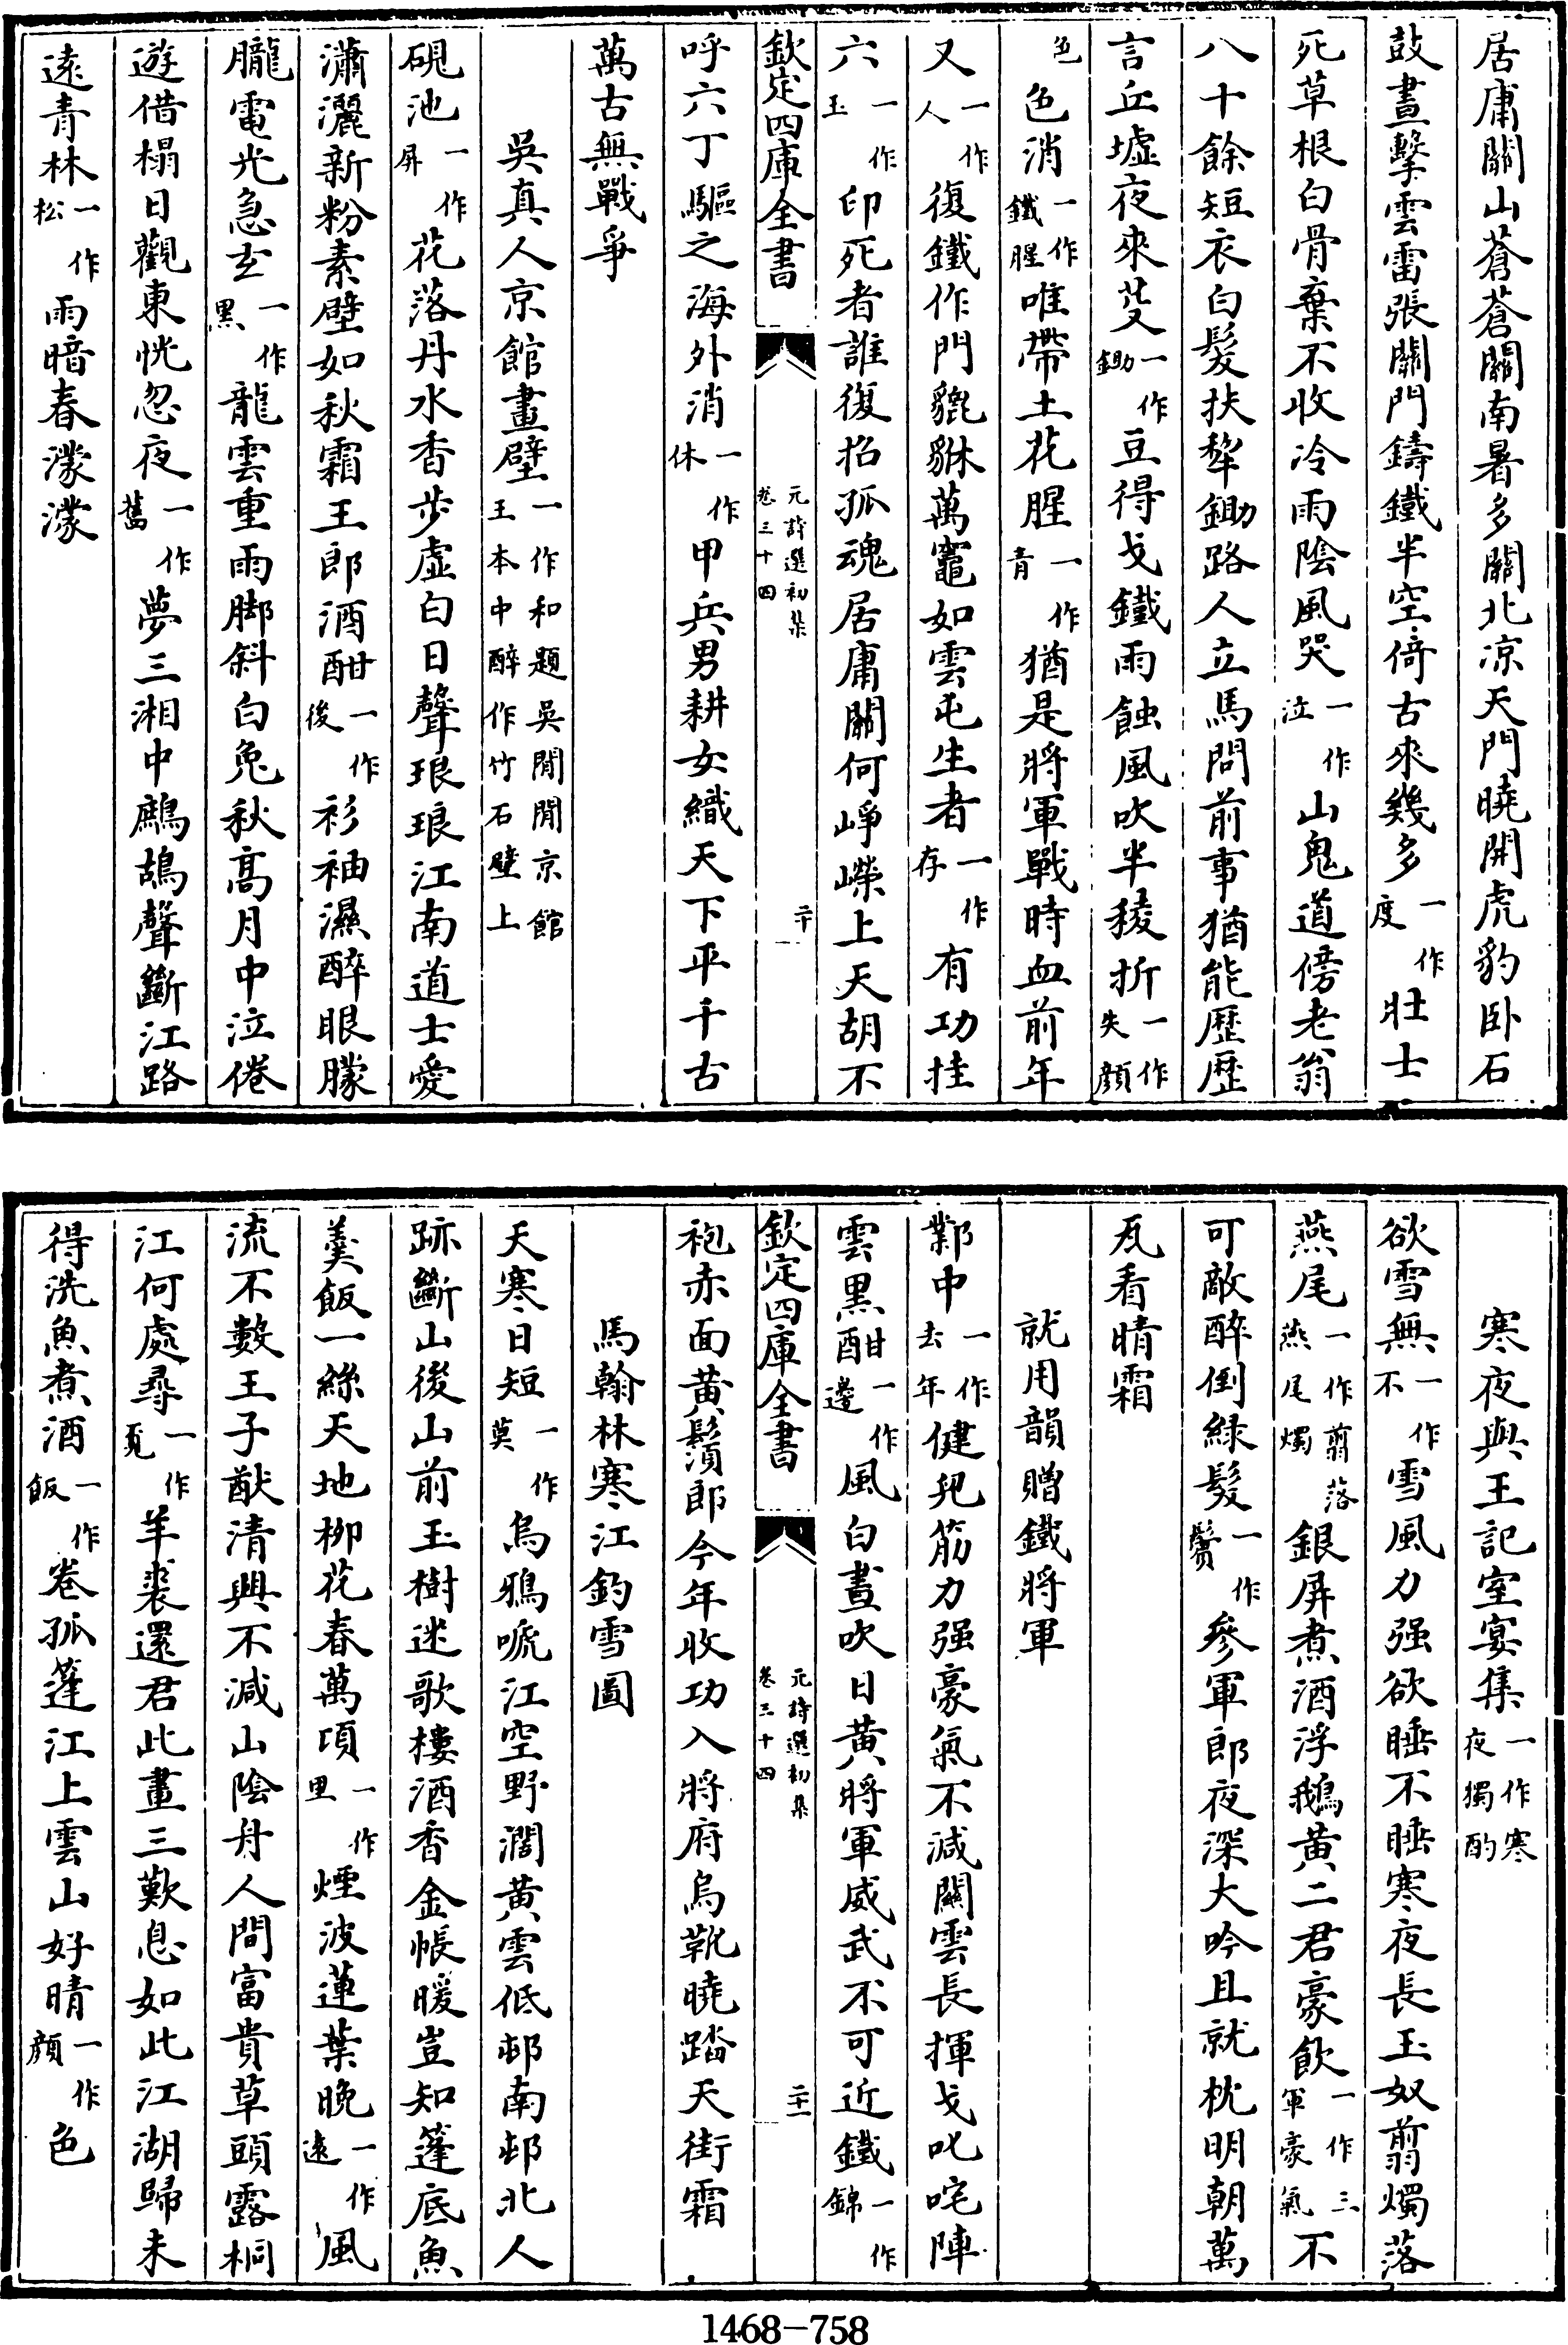 居庸關山蒼蒼關南暑多關北凉天門曉開虎豹卧石
鼓晝擊雲雷張關門鑄鐵半空倚古來幾多一作度壯士
死草根白骨棄不收冷雨陰風哭一作泣山鬼道傍老翁
八十餘短衣白髮扶犂鋤路人立馬問前事猶能歴歴
言丘墟夜來芟一作鋤豆得戈鐵雨蝕風吹半稜折一作失顔
色色消一作鐵腥唯帶土花腥一作青猶是將軍戰時血前年
又一作人復鐵作門貔貅萬竈如雲屯生者一作存有功挂
六一作玉印死者誰復招孤魂居庸關何崢嶸上天胡不
欽定四庫全書 元詩選初集 卷三十四 二十
呼六丁驅之海外消一作休甲兵男耕女織天下平千古
萬古無戰爭
吳真人京館畫壁一作和題吳閒閒京館王本中醉作竹石壁上
硯池一作屏花落丹水香步虚白日聲琅琅江南道士愛
瀟灑新粉素壁如秋霜王郎酒酣一作後衫袖濕醉眼朦
朧電光急玄一作黑龍雲重雨脚斜白兔秋高月中泣倦
遊借榻日觀東恍忽夜一作舊夢三湘中鷓鴣聲斷江路
遠青林一作松雨暗春濛濛
寒夜與王記室宴集一作寒夜獨酌
欲雪無一作不雪風力强欲睡不睡寒夜長玉奴翦燭落
燕尾一作翦落燕尾燭銀屏煮酒浮鵝黄二君豪飲一作三軍豪氣不
可敵醉倒緑髮一作鬢參軍郎夜深大吟且就枕明朝萬
瓦看晴霜
就用韻贈鐵將軍
鄴中一作去年健兒筋力强豪氣不減關雲長揮戈叱咤陣
雲黒酣一作邊風白晝吹日黄將軍威武不可近鐵一作錦
欽定四庫全書 元詩選初集 卷三十四 二十一
袍赤面黄鬚郎今年收功入將府烏靴曉踏天街霜
馬翰林寒江釣雪圖
天寒日短一作莫烏鴉唬江空野濶黄雲低邨南邨北人
跡斷山後山前玉樹迷歌樓酒香金帳暖豈知篷底魚
羮飯一絲天地柳花春萬頃一作里煙波蓮葉晚一作遠風
流不數王子猷清興不減山陰舟人間富貴草頭露桐
江何處尋一作覓羊裘還君此畫三歎息如此江湖歸未
得洗魚煮酒一作飯卷孤篷江上雲山好晴一作顔色
1468-758